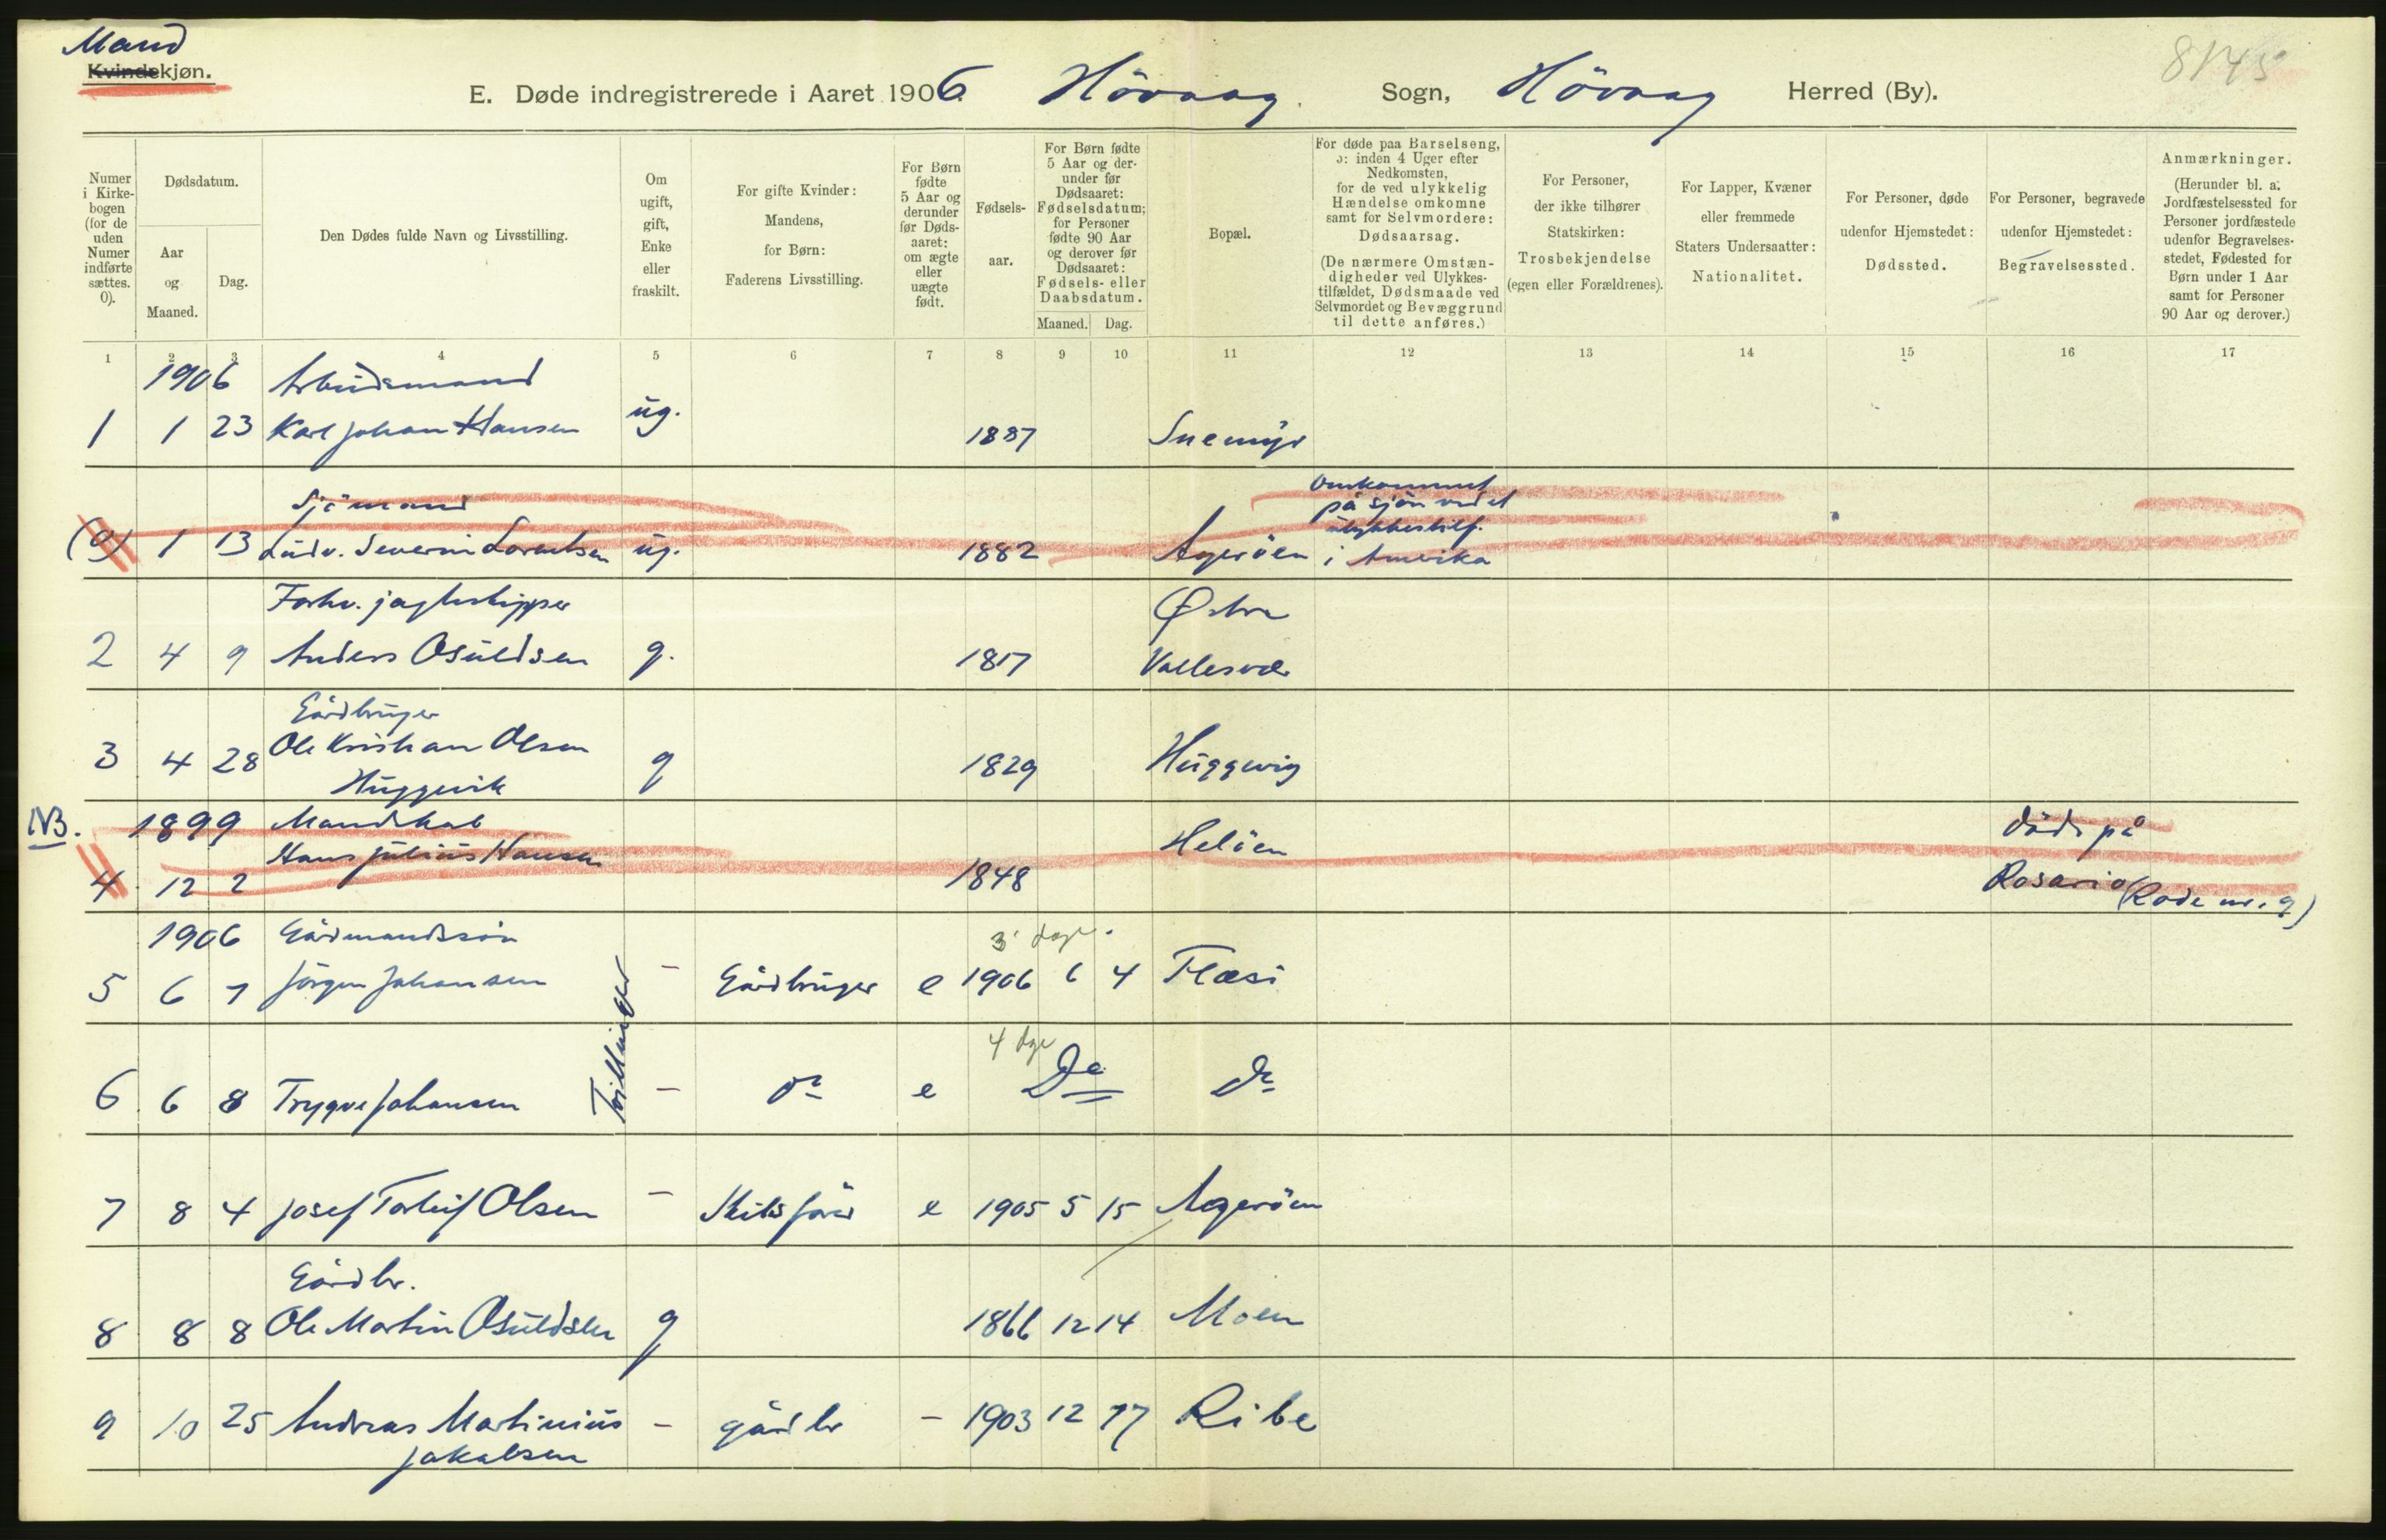 Mand
Kvindekjøn.
E. Døde indregistrerede i Aaret 1906. Hövaag. Sogn, Hövaag Herred (By).
Numer i Kirkebogen (for de uden Numer indførte sættes. 0).
Dødsdatum.
Aar og Maaned.
Dag.
Den Dødes fulde Navn og Livsstilling.
Om ugift, gift, Enke eller fraskilt.
For gifte Kvinder: Mandens, for Børn: Faderens Livsstilling.
For Børn fødte 5 Aar og derunder før Dødsaaret: om ægte eller uægte født.
Fødselsaar.
For Børn fødte 5 Aar og derunder før Dødsaaret: Fødselsdatum; for Personer fødte 90 Aar og derover før Dødsaaret: Fødsels- eller Daabsdatum.
Maaned. Dag.
Bopæl.
For døde paa Barselseng, ɔ: inden 4 Uger efter Nedkomsten, for de ved ulykkelig Hændelse omkomne samt for Selvmordere: Dødsaarsag.
(De nærmere Omstændigheder ved Ulykkestilfældet, Dødsmaade ved Selvmordet og Bevæggrund til dette anføres.)
For Personer, der ikke tilhører Statskirken: Trosbekjendelse (egen eller Forældrenes).
For Lapper, Kvæner eller fremmede Staters Undersaatter: Nationalitet.
For Personer, døde udenfor Hjemstedet: Dødssted.
For Personer, begravede udenfor Hjemstedet: Begravelsessted.
Anmærkninger.
(Herunder bl. a. Jordfæstelsessted for Personer jordfæstede udenfor Begravelsesstedet, Fødested for Børn under 1 Aar samt for Personer 90 Aar og derover.)
1 2 3 4 5 6 7 8 9 10 11 12 13 14 15 16 17
1906 Arbeidsmand
1 1 23 Karl Johan Hansen ug. 1887 Snemyr
Sjömand omkommet
på sjön ved et
ulykkestilf.
(0) 1 13 Ludv. Severin Lorentsen ug. 1882 Agerøen i Amerika
Forhv. jagtskipper Østre
2 4 9 Anders Osuldsen g. 1817 Vallesvær
Gårdbruger
3 4 28 Ole Kristian Olsen g 1829 Huggevig
Huggevik
NB. 1899 Mandskab død på
Hans Julius Hansen Helöen
4 12 2 1848 Rosario (Rode nr. 9)
1906 Gårdmandssön 3 dage.
5 6 7 Jörgen Johansen - Gårdbruger e 1906 6 4 Flæsi
Tvillinger
4 dge
6 6 8 Trygve Johansen - do e Do do
7 8 4 Josef Torleif Olsen - e 1905 5 15 Agerøen
Gårdbr.
8 8 8 Ole Martin Osuldsen g 1866 12 14 Moen
9 10 25 Andreas Martinius - gårdbr - 1903 12 17 Ribe
Jakobsen